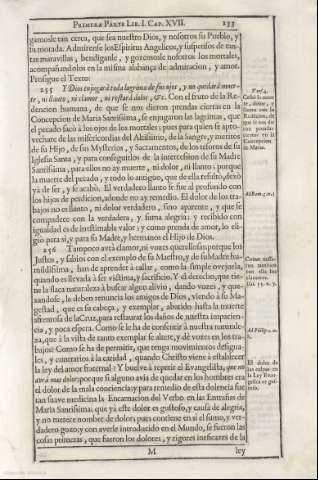 PRIMERA PARTE LIB. I. CAP. XVII. 133
gamosle tan cerca, que sea nuestro Dios, y nosotros su Pueblo, y
su morada. Admirense los Espiritus Angelicos, y suspensos de tan-
tas maravillas, bendiganle, y gozemosle nosotros los mortales,
acompañandolos en la misma alabança de admiracion, y amor.
Prosigue el Texto:
255 Y Dios enjugará toda lagrima de sus ojos, y no quedará muer-
te, ni llanto, ni clamor, ni restará dolor, &c. Con el fruto de la Re-
dencion humana, de que se nos dieron prendas ciertas en la
Concepcion de Maria Santissima, se enjugaràn las lagrimas, que
el pecado sacò à los ojos de los mortales; pues para quien se apro-
vechare de las misericordias del Altissimo, de la Sangre, y meritos
de su Hijo, de sus Mysterios, y Sacramentos, de los tesoros de su
Iglesia Santa, y para conseguirlos de la intercession de su Madre
Santissima, para ellos no ay muerte, ni dolor, ni llanto; porque
la muerte del pecado, y todo lo antiguo, que de ella resultò, dexò
yà de ser, y se acabò. El verdadero llanto se fue al profundo con
los hijos de perdicion, adonde no ay remedio. El dolor de los tra-
bajos no es llanto, ni dolor verdadero, sino aparente, y que se
compadece con la verdadera, y suma alegria; y recibido con
igualdad es de inestimable valor; y como prenda de amor, lo eli-
giò para sì, y para su Madre, y hermanos el Hijo de Dios.
256 Tampoco avrà clamor, ni vozes querellosas: porque los
Justos, y sabios con el exemplo de su Maestro, y de su Madre hu-
mildissima, han de aprender à callar, como la simple ovejuela,
quando es llevada à ser victima, y sacrificio. Y el derecho, que tie-
ne la flaca naturaleza à buscar algun alivio, dando vozes, y que-
xandose, le deben renunciar los amigos de Dios, viendo à su Ma-
gestad, que es su cabeça, y exemplar, abatido hasta la muerte
afrentosa de la Cruz, para restaurar los daños de nuestra impacien-
cia, y poca espera. Como se le ha de consentir à nuestra naturale-
za, que à la vista de tanto exemplar se altere, y dè vozes en los tra-
bajos? Como se ha de permitir, que tenga movimientos desigua-
les, y contrarios à la caridad, quando Christo viene à establecer
la ley del amor fraternal? Y buelve à repetir el Evangelista, que no
avrá mas dolor; porque si alguno avia de quedar en los hombres era
el dolor de la mala conciencia; y para remedio de esta dolencia fue
tan suave medicina la Encarnacion del Verbo en las Entrañas de
Maria Santissima: que yà este dolor es gustoso, y causa de alegria,
y no merece nombre de dolor; pues contiene en sì el sumo, y ver-
dadero gozo; y con averle introducido en el Mundo, se fueron las
cosas primeras, que fueron los dolores, y rigores ineficaces de la
M ley